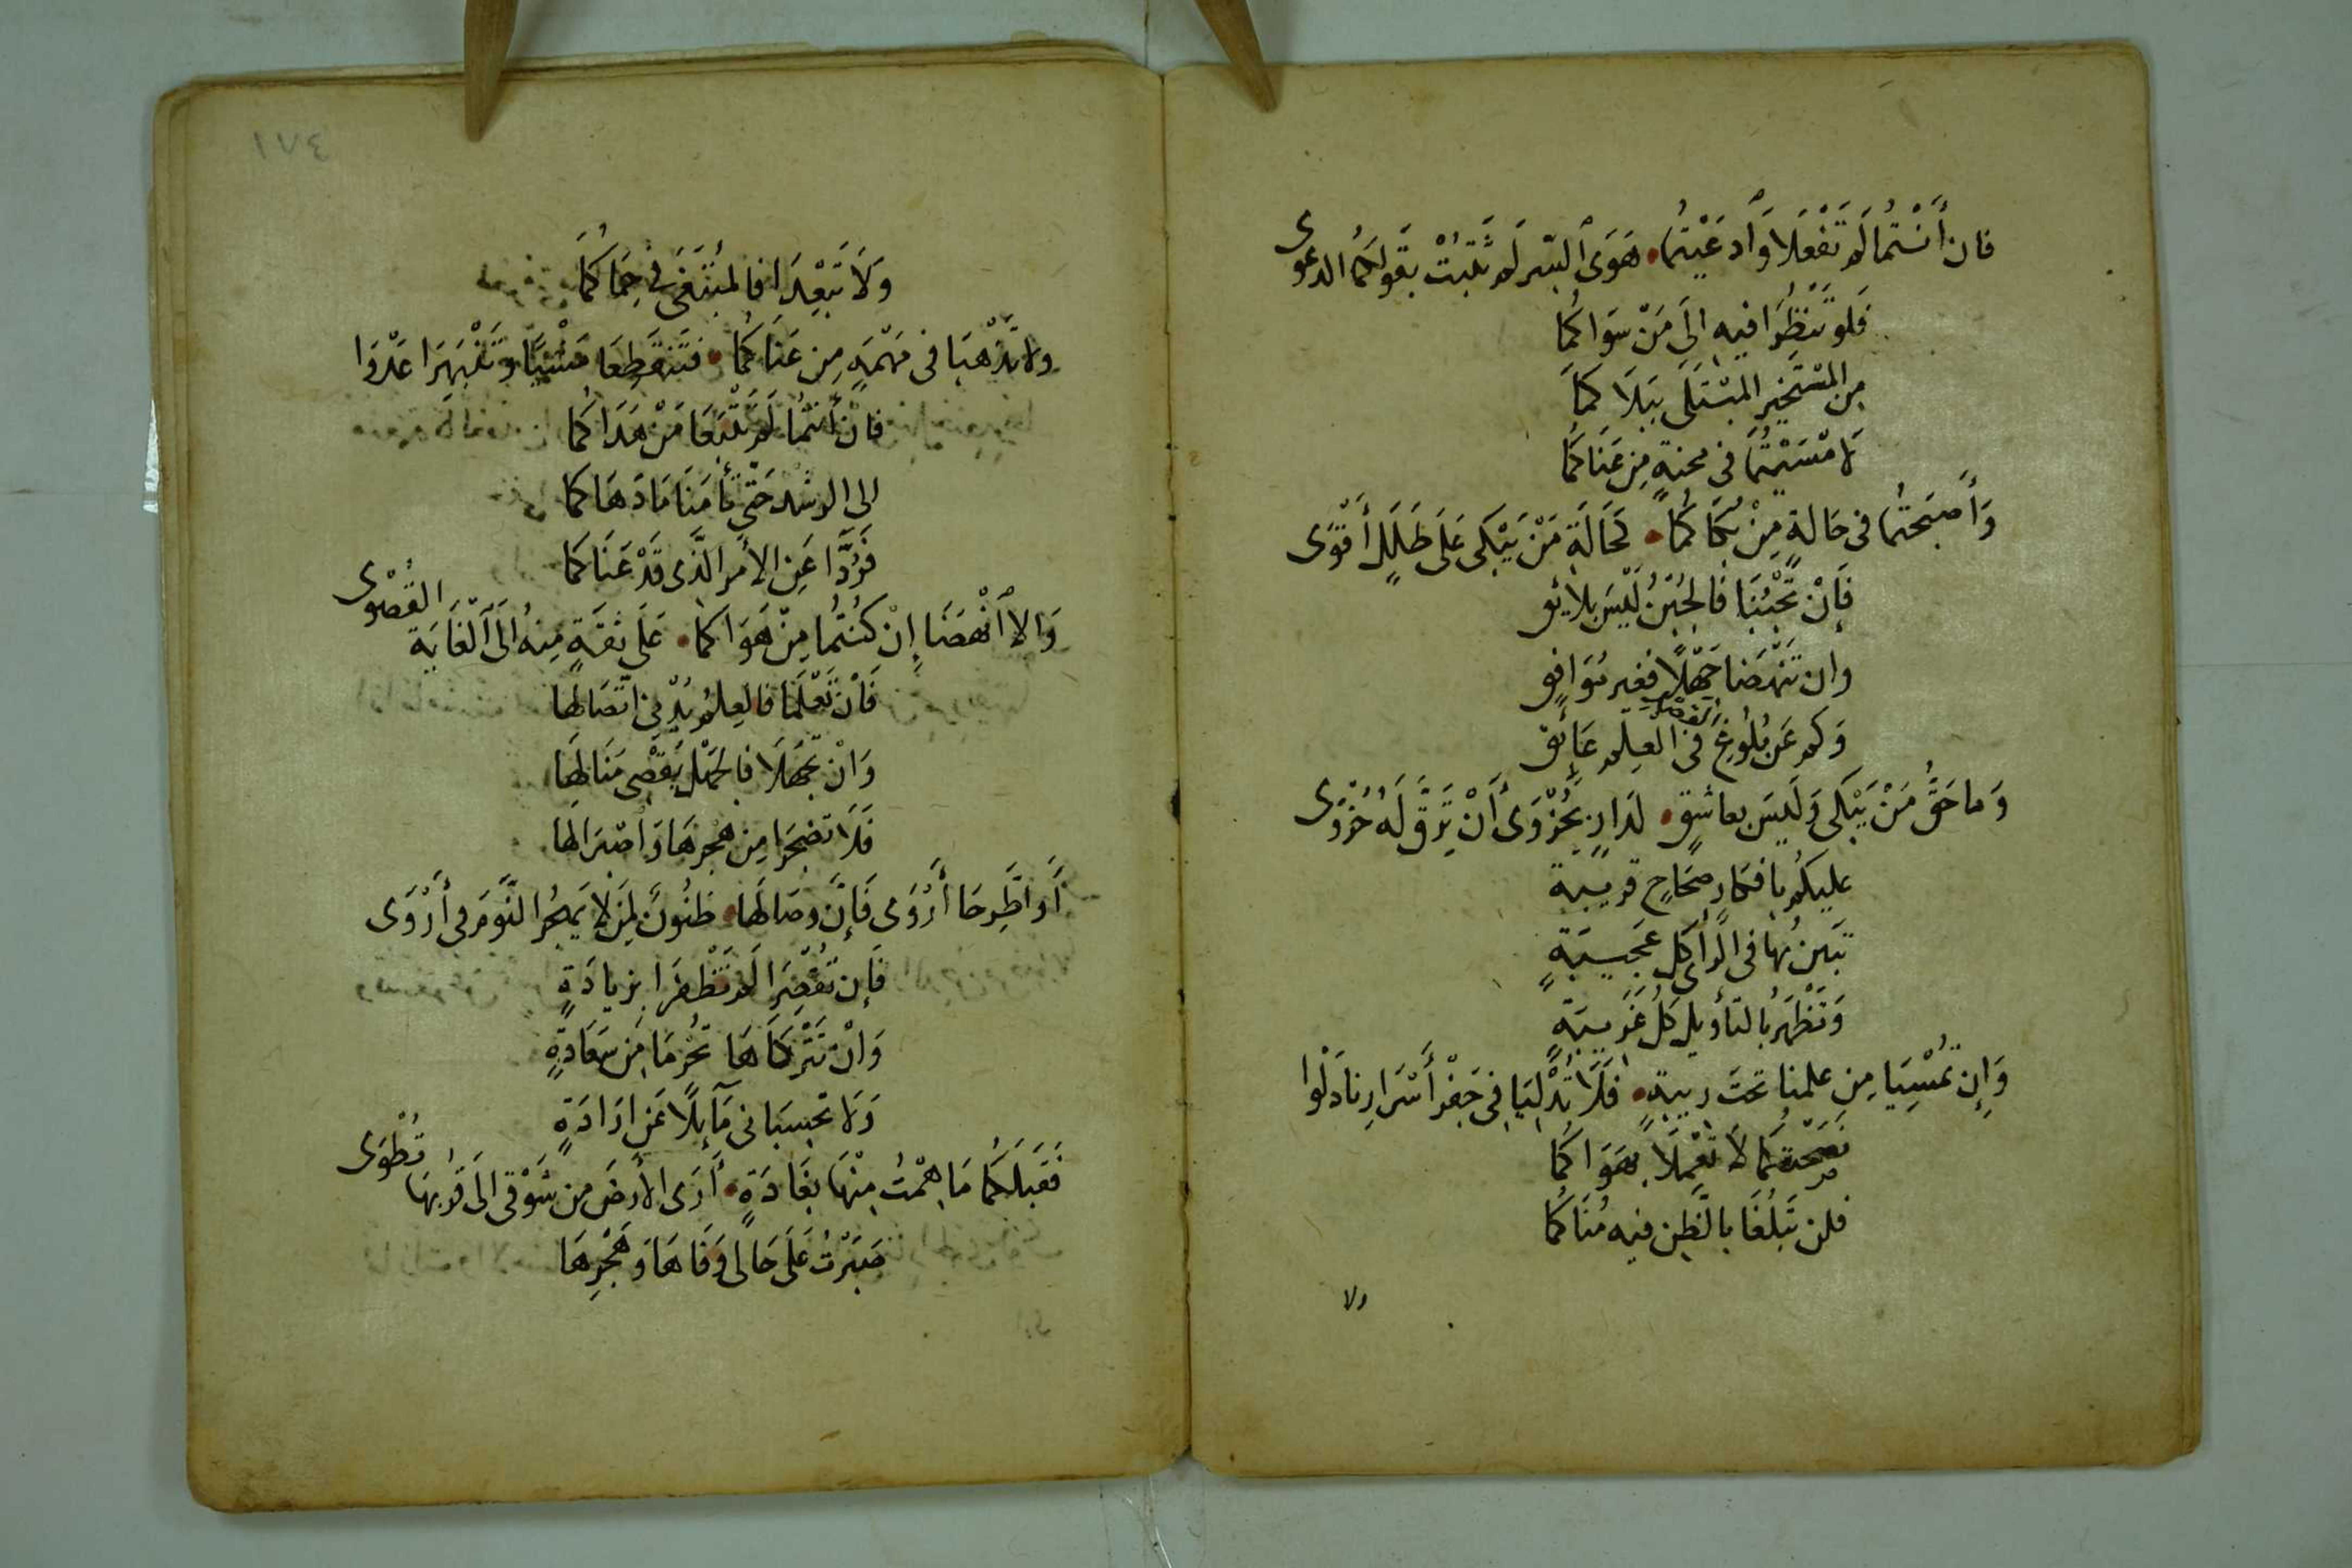 فان أَنْتُما لَم تَفْعَلا وَأدعَيْتُما هَوَى السّر لَم تَثْبُتْ بقَولِكُما الدعوى
فَلَو تَنظُرا فيهِ الى مَنْ سَوَاكما
مِن المسْتَخيرِ المُبْتَلَى ببَلَاكما
لَا مْسَيْتُما في محنةٍ مِن عَنَاكما
وَأَصبَحتُما في حَالةٍ مِنْ بُكَاكُما كَحَالَةِ مَنْ يَبْكي عَلَى طَلَلٍ أَقْوَى
فَإنْ تَجْبُنَا فَالجُبْنُ لَيْسَ بلائقٍ
وان تَنْهَضَا جَهْلًا فَغير مُوَافِقٍ
وَكم عَن بُلُوغِ القصد في العِلم عَائقٍ
وَما حَقُّ مَنْ يَبْكي وَلَيسَ بعاشقٍ لدَارٍ بحُزْوَى أَنْ تَرِقَّ لَهُ حُزْوَى
عليكم بافكارٍ صحَاحٍ قريبة
تبَين بها في الرأى كل عَجَيبَةٍ
وَتَظْهَرُ بالتأويل كلُ غَريبَةٍ
وَإن تُمْسِيَا مِن علمنا تحت ريبةٍ فَلَا تُدْلِيَا في جَفْرِ أَسْرَارِنا دَلْوا
نَصَحْتكُما لَا تَعْمَلا بهَوَاكُما
فلن تَبلُغَا بالظَّن فيه مُنَاكُما
ولا
١٧٤
وَلَا تَبْعِدَا فالمُبْتَغَى في حِمَاكُما
ولا تذْهبَا في مَهْمَهٍ مِن عَنَاكُما فتَنقَطِعَا مَشْيًا وتَنْبَهِرَا عَدْوَا
فان أَنتُما لَم تَتْبَعَا مَنْ هَدَاكُما
الى الرشد حَتّى تأمَنَا مَا دَهَاكما
فَرُدَّا عَنِ الأمر الَّذى قَدْ عَنَاكَما
وَالا أنْهضَا إِنْ كُنتُما مِنْ هَوَاكما عَلَى ثقةٍ مِنهُ الى الغَايَة القُصْوى
فَاْن تَعْلَمَا فالعِلمُ يُدْنِى اتّصَالهَا
وَانْ تجْهَلَا فالجَهْل يُقْصِى مَنَالهَا
فَلَا تضجَرَا مِن هجرهَا وَاصْبِرَا لهَا
أَو اطَّرِحَا أَرْوَى فَإنَّ وصَالهَا ظنُونٌ لِمَن لا يَهجُر النَّومَ في أَرْوَى
فَإن تُقْصِرَا لَم تَظْفرَا بزيادَةٍ
وَانْ تَتْرُكَاهَا تُحْرَمَا مِن سَعَادَةٍ
وَلَا تحسبَا نى مَآئِلًا عَن ارَادَةٍ
فَقَبلَكُما مَا هِمْتُ مِنْهَا بغَادَةٍ أَرَى الارضَ مِن شَوْقى الى قُربهَا تُطْوَى
صَبَرْتُ عَلَى حَالى وَفَاهَا وَهَجْرِهَا